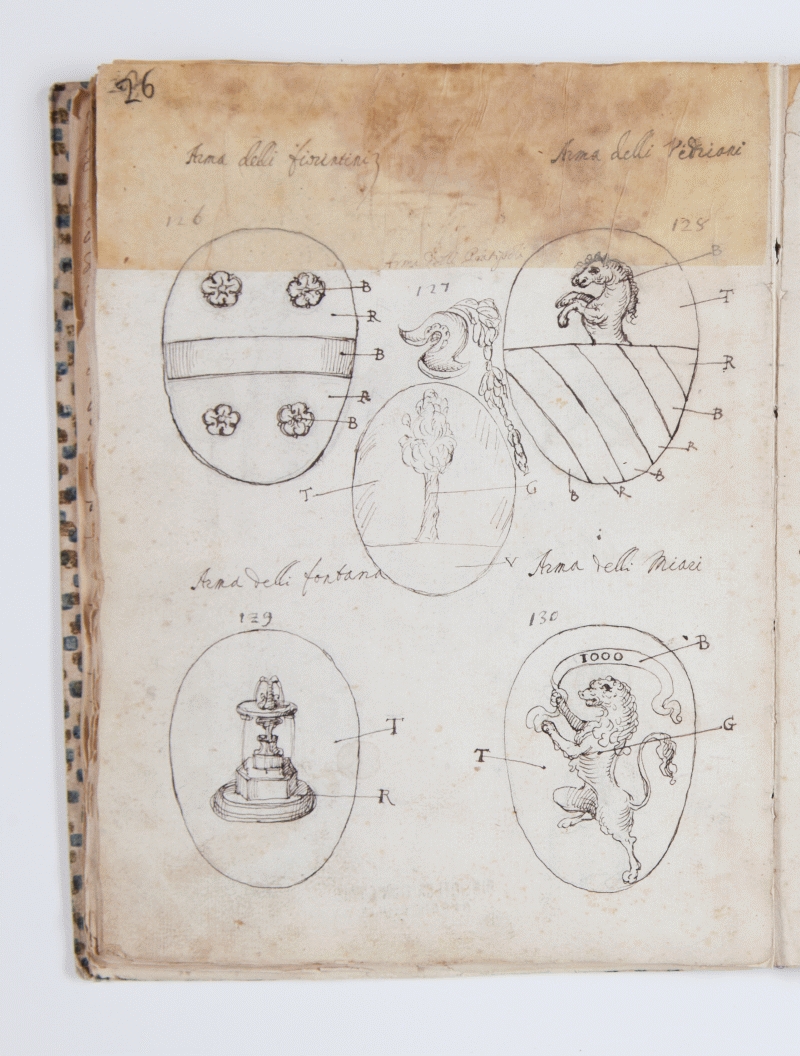 26
Arma delli fiorentini
Arma delli Vedriani
126
128
Arma delli
127
B
R
B
R
B
B
T
R
B
R
B
R
B
T
G
V
Arma delli fontana
Arma delli Miari
129
130
T
R
1000
B
G
T